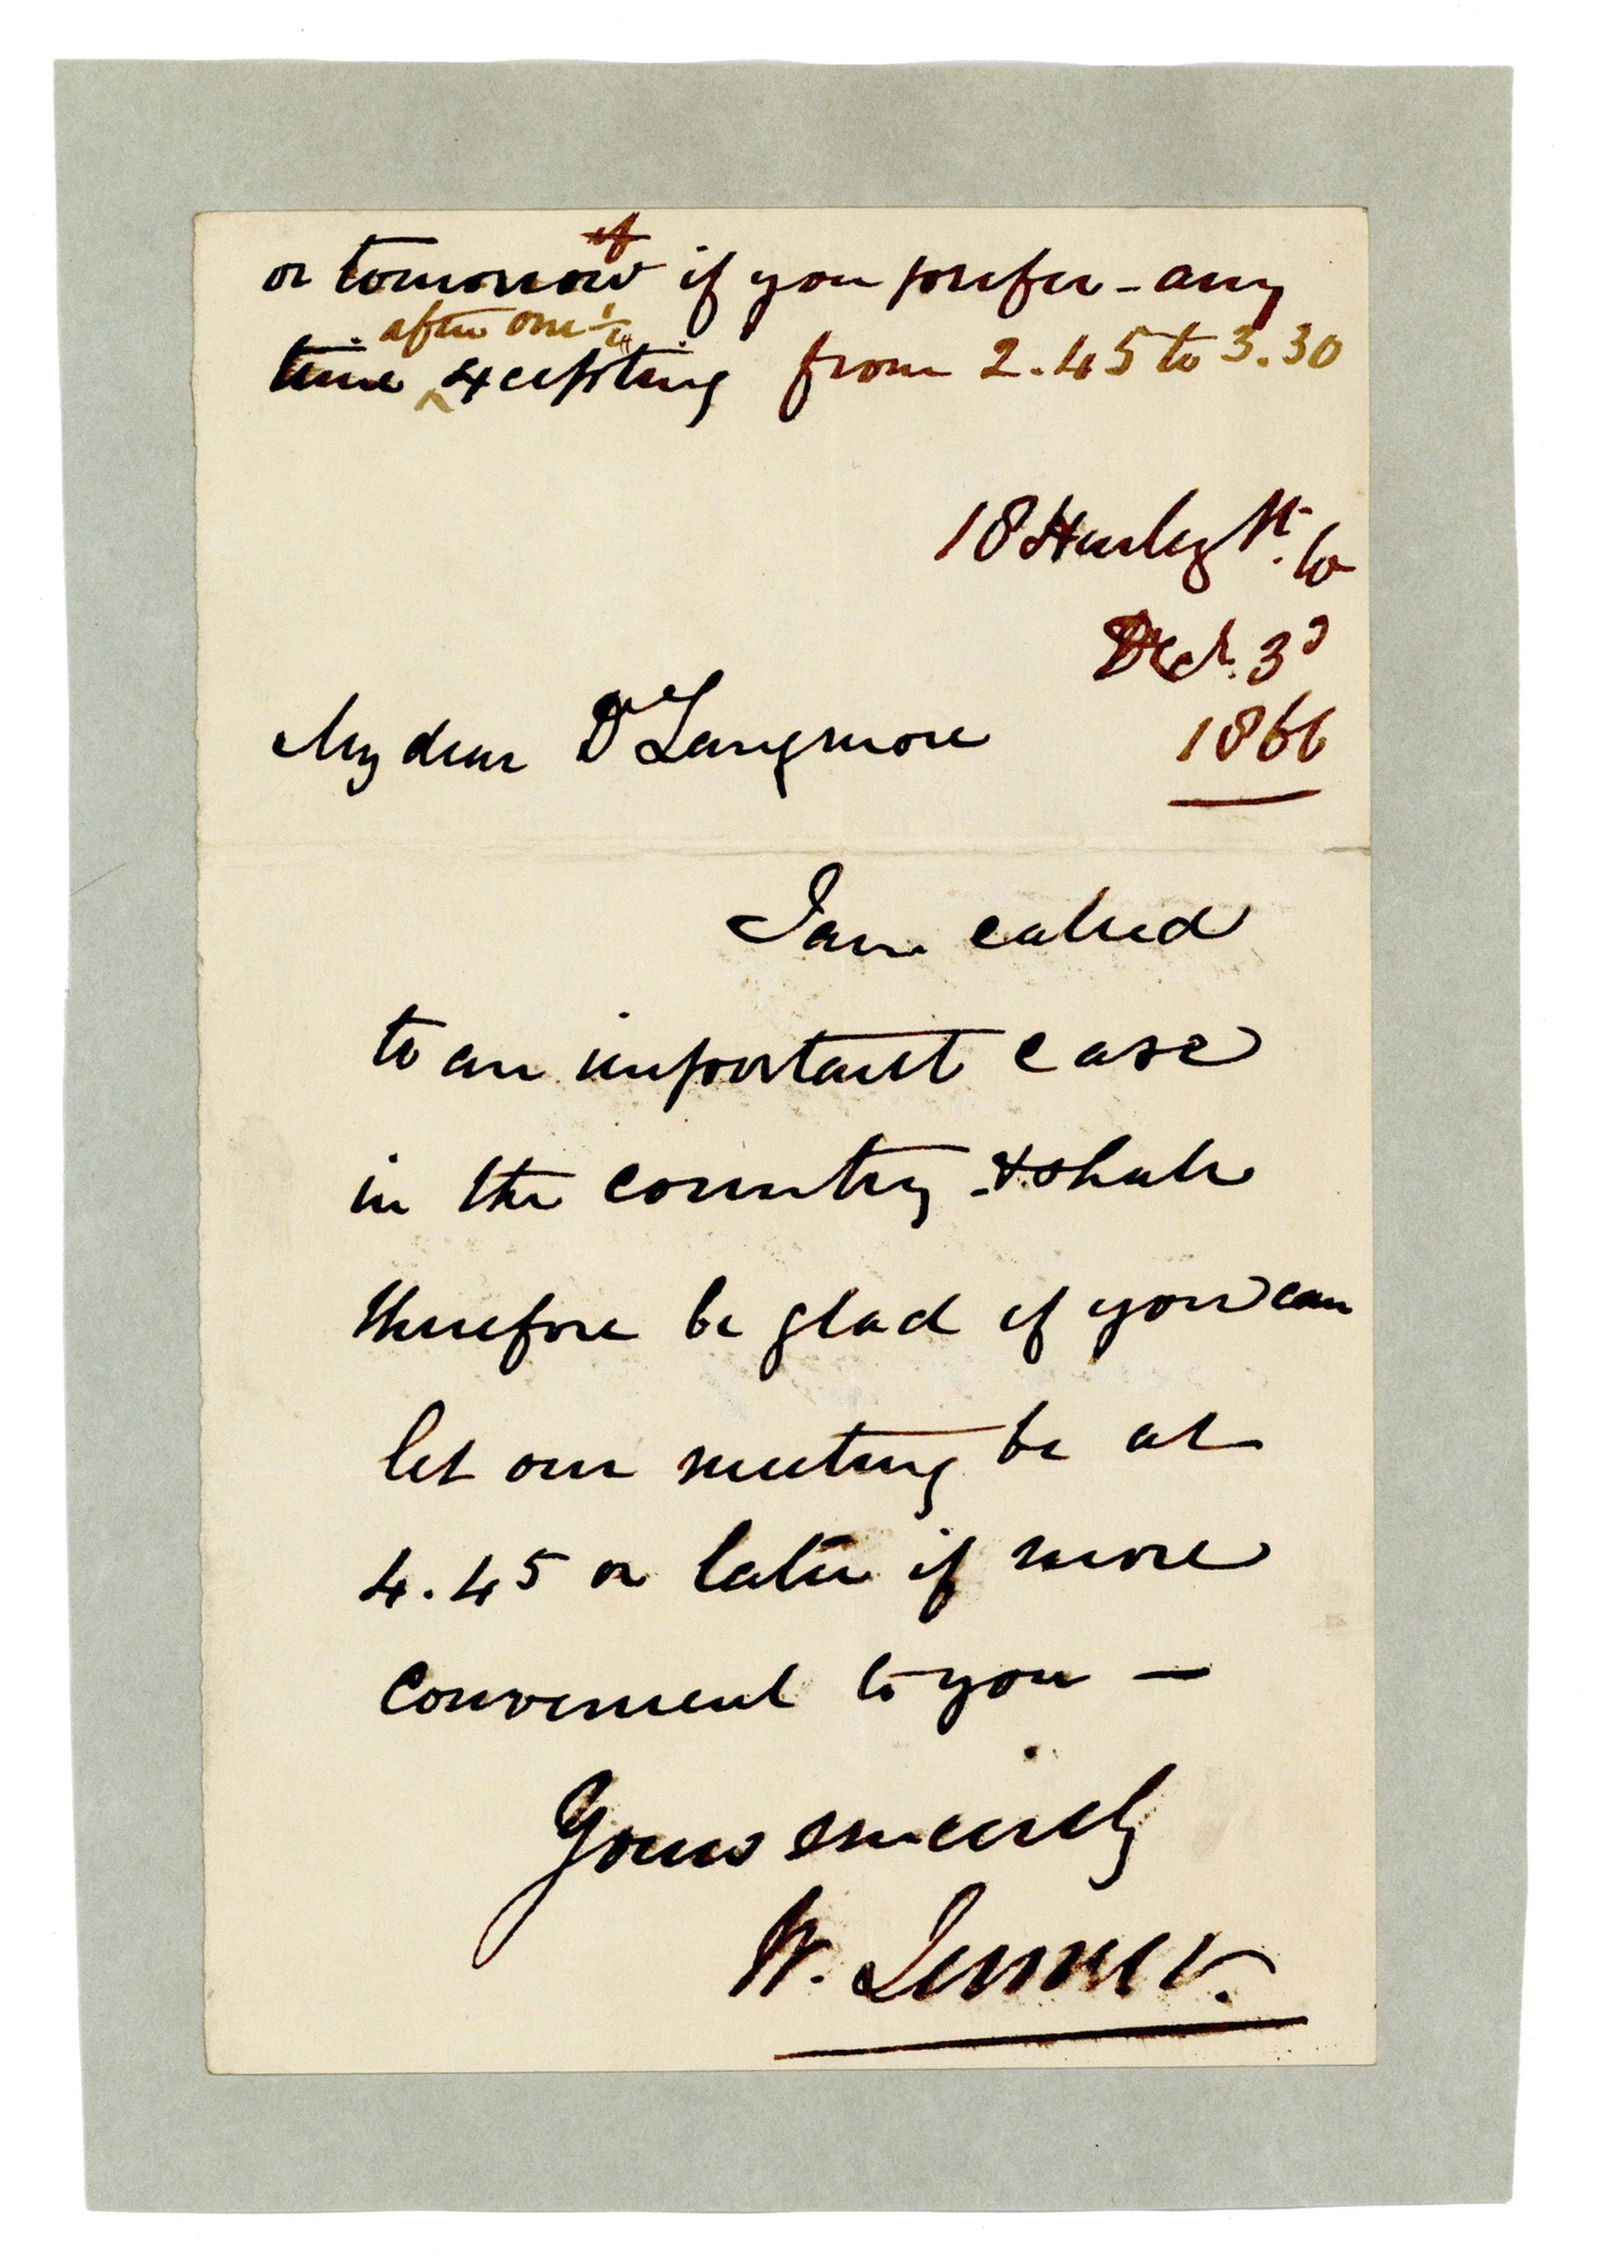 or tomorrow if you prefer - any
after one ½
time excepting from 2.45 to 3.30
18 Harley St. W
Decr. 3d
1866
My dear Dr Langmore
I am called
to an important case
in the country & shall
therefore be glad if you can
let our meeting be at
4.45 or later if more
convenient to you —
Yours sincerely
W. Jenner.